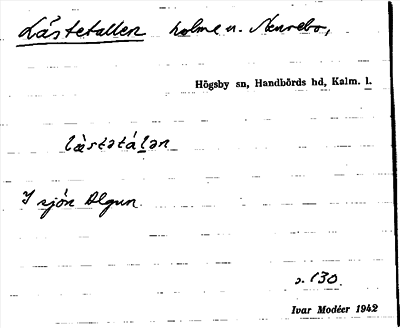 Lästetallen holme n. Nennebo,
Högsby sn, Handbörds hd, Kalm. l.
læ̀stətálən
I sjön Algun.
s. 130.
Ivar Modéer 1942